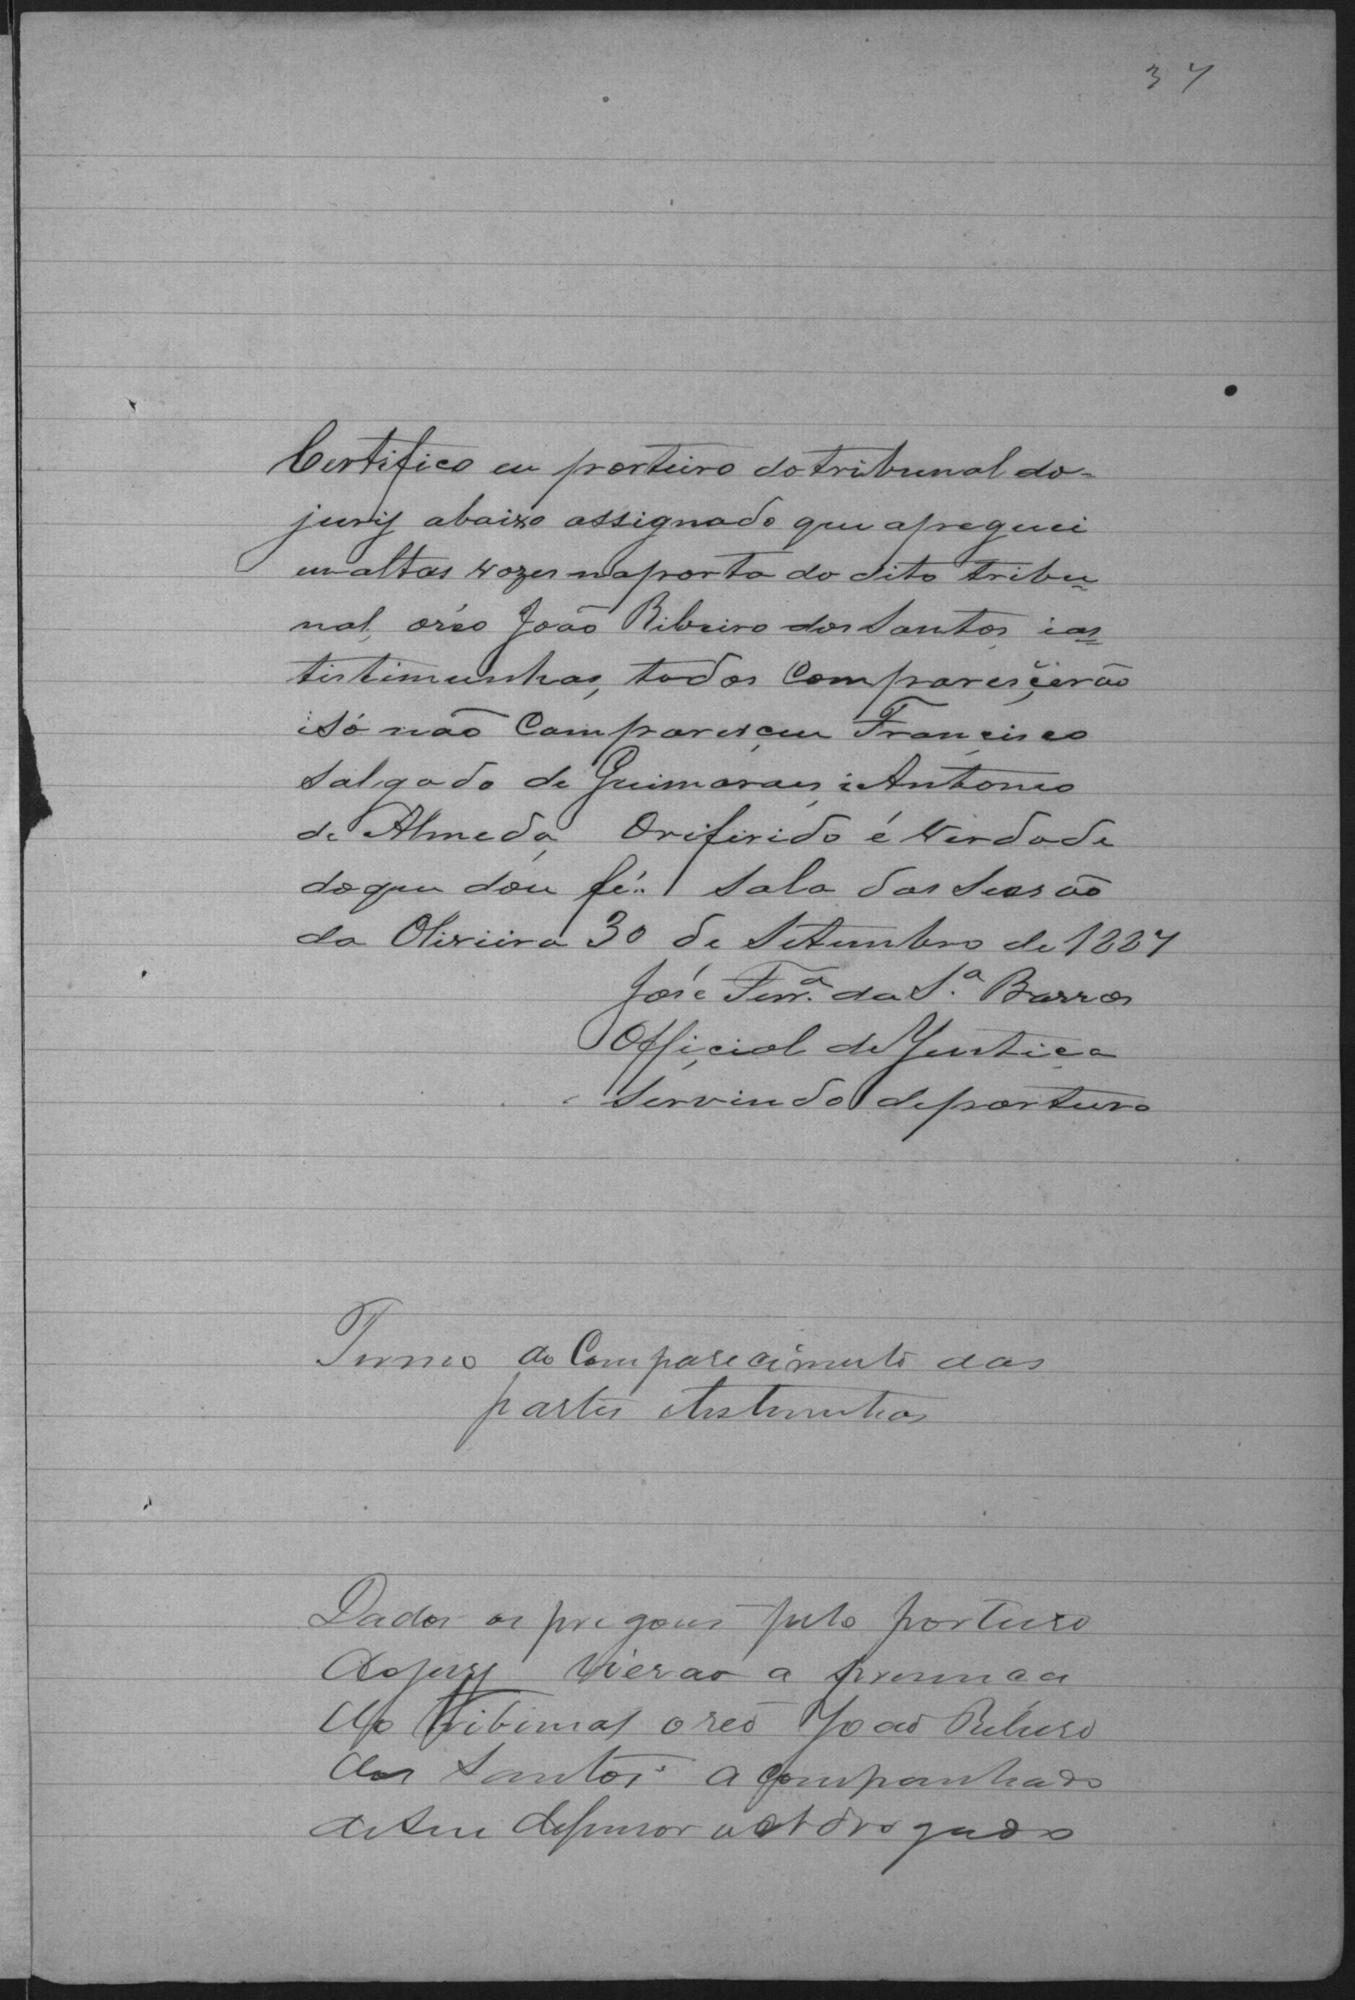 37
Certifico eu porteiro do tribunal do-
jurÿ abaixo assignado que apreguei
em altas vozes na porta do dito tribu-
nal, oréo João Ribeiro dos Santos, i as
tistimunhas, todos Comparesçerão
i só não Comparesçeu Françisco
Salgado de Guimaraes, i Antonio
de Almeda, Oriferido é verdade
do que dou fé.. Sala das Sessão
da Oliveira 30 de Setembro de 1887
José Ferr.ª da S.ª Barros
Offiçial de Justiça
Servindo de porteiro
Termo de Comparecimento das
partes e testemunhas
Dados os pregoes pelo porteiro
do jury vierao a presença
do Tribunal o reo Joao Ribeiro
dos Santos acompanhado
de seu defensor o Advogado